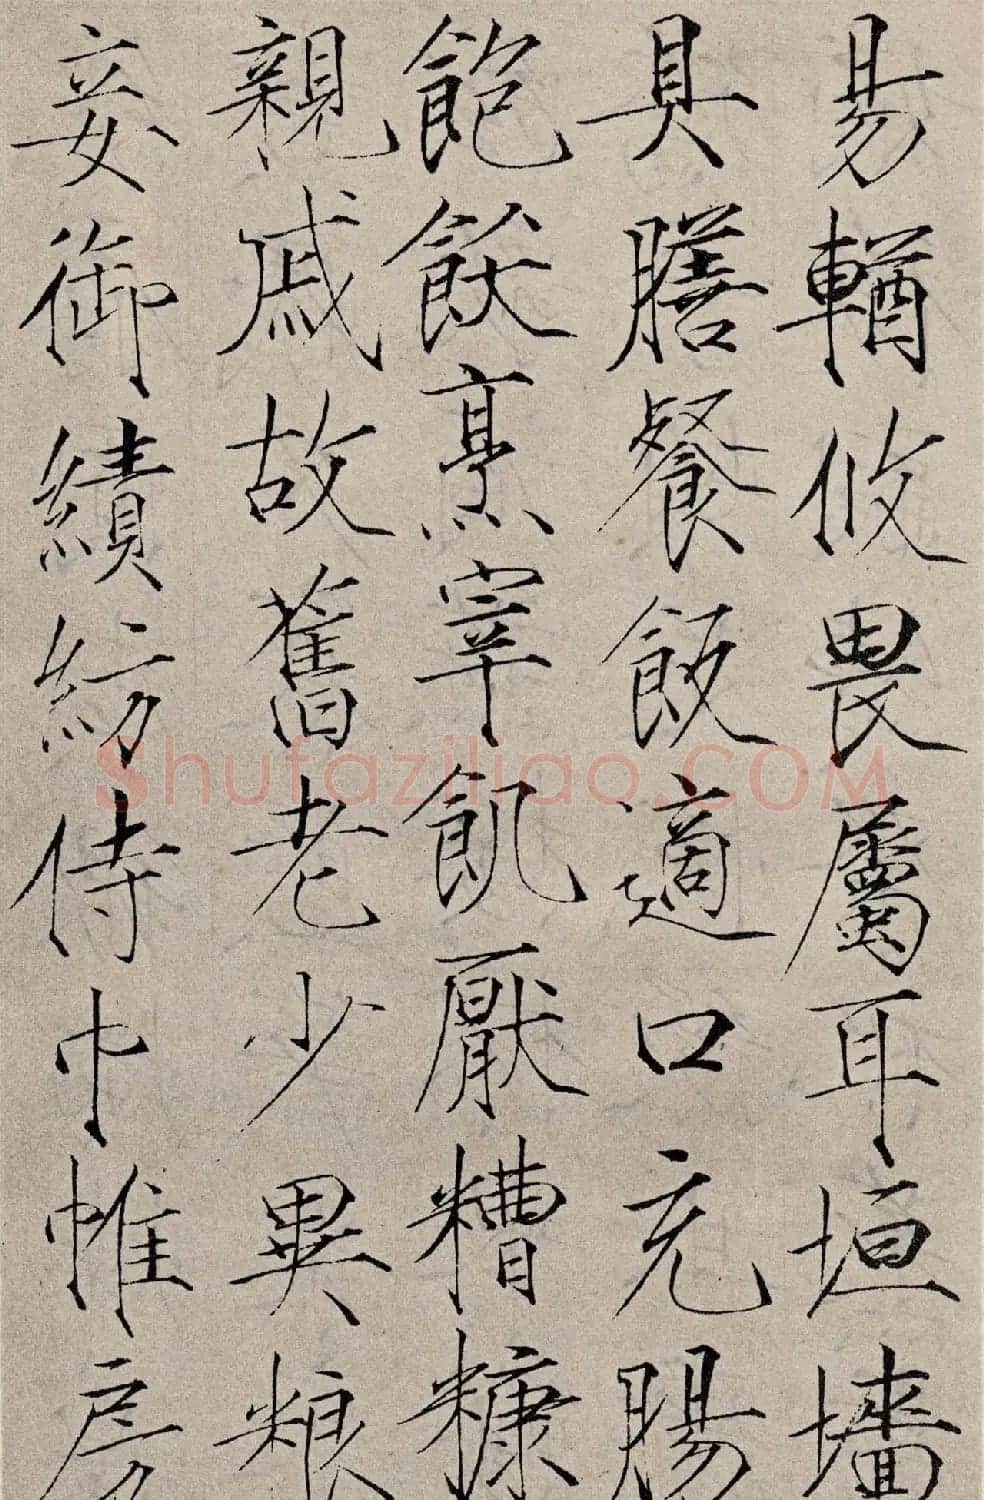 易輶攸畏屬耳垣墻
具膳餐飯適口充腸
飽飫烹宰飢厭糟糠
親戚故舊老少異粮
妾御績紡侍巾帷房
Shufaziliao.COM